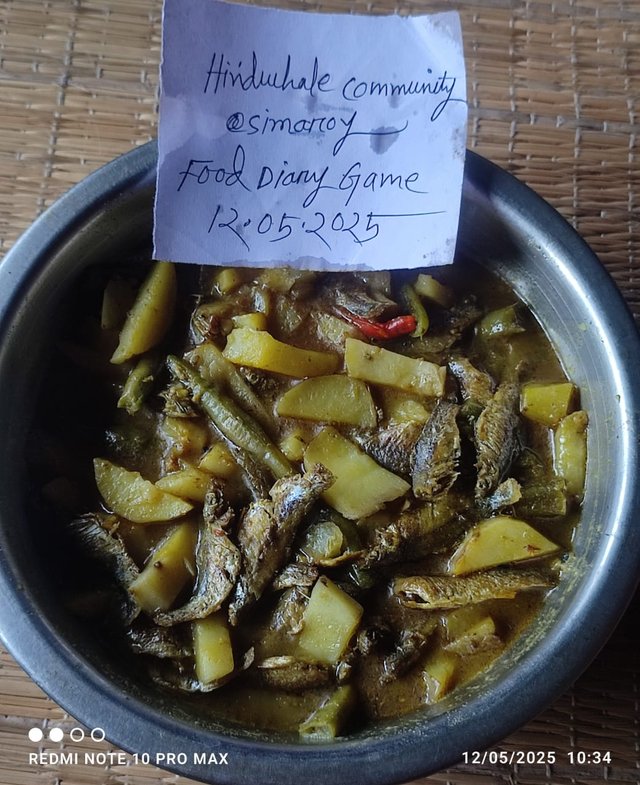 Hindwhale community
@simaroy
Food Diary Game
12.05.2025
REDMI NOTE 10 PRO MAX
12/05/2025 10:34